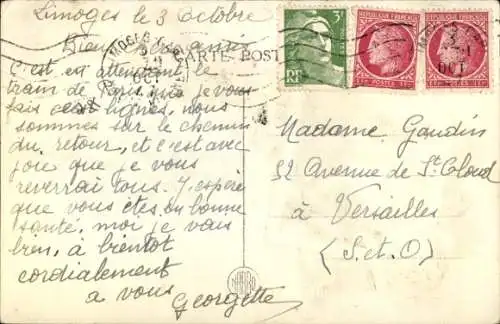 Limoges le 3 Octobre
Bien chers amis
CARTE POST
C'est en attendant le
train de Paris que je vous
fais ces lignes, nous
sommes sur le chemin
du retour, et c'est avec
joie que je vous
reverrai tous. J'espère
que vous êtes en bonne
santé, moi je vais
bien, à bientôt
cordialement
à vous
Georgette
3F
RF
REPUBLIQUE FRANÇAISE
POSTES
REPUBLIQUE FRANÇAISE
OCT
Madame Gaudin
52 Avenue de St Cloud
à Versailles
(S.et.O)